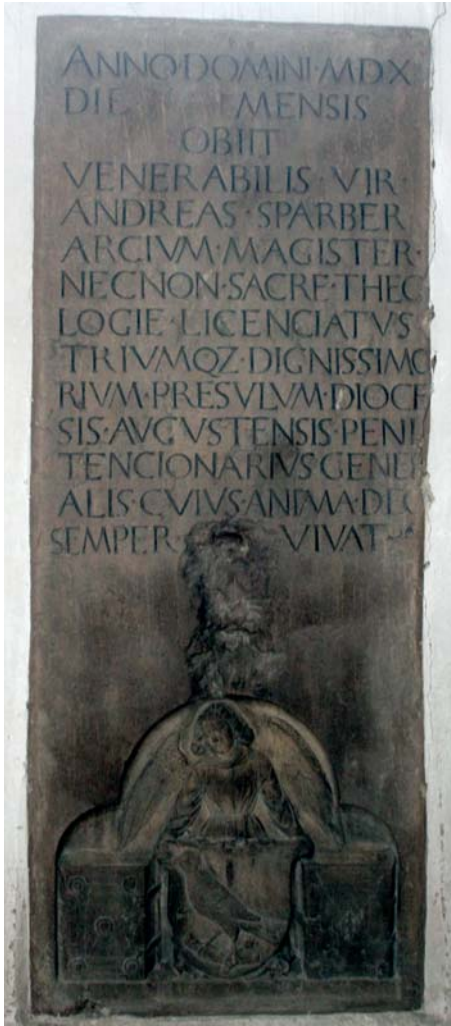 ANNO·DOMINI·MDX
DIE MENSIS
OBIIT
VENERABILIS·VIR·
ANDREAS·SPARBER
ARCIVM·MAGISTER·
NECNON·SACRE·THEO
LOGIE·LICENCIATVS
TRIVMQZ·DIGNISSIMO
RIVM·PRESVLVM·DIOCE
SIS·AVGVSTENSIS·PENI
TENCIONARIVS·GENER
ALIS·CVIVS·ANIMA·DEO
SEMPER· VIVAT